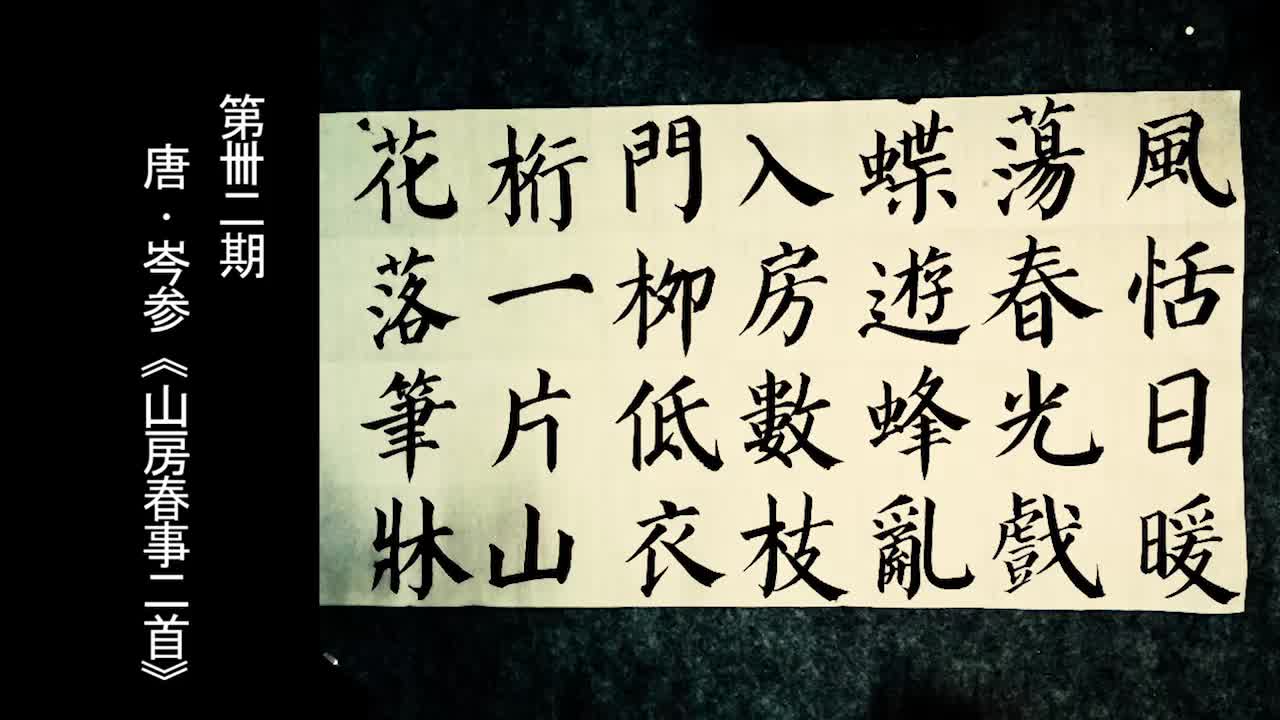 風恬日暖
蕩春光戲
蝶遊蜂亂
入房數枝
門柳低衣
桁一片山
花落筆牀
第卌二期
唐·岑参《山房春事二首》